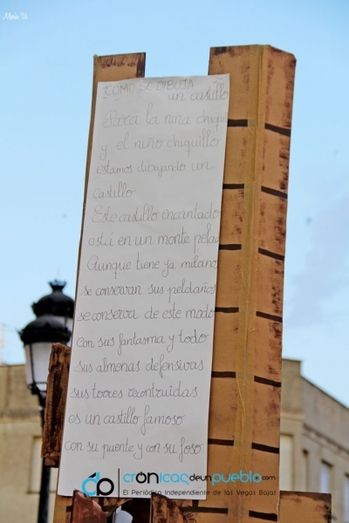 Maria Vi
COMO SE DIBUJA
un castillo
Para la niña chiqui
y el niño chiquillo
estamos dibujando un
castillo
Este castillo encantado
está en un monte pelao
Aunque tiene ya milano
se conservan sus peldaños
se conserva de este modo
con sus fantasma y todo
sus almonas defensivas
sus torres recontruidas
es un castillo famoso
con su puente y con su foso
crónicasdeunpueblo.com
El Periódico Independiente de las Vegas Bajas